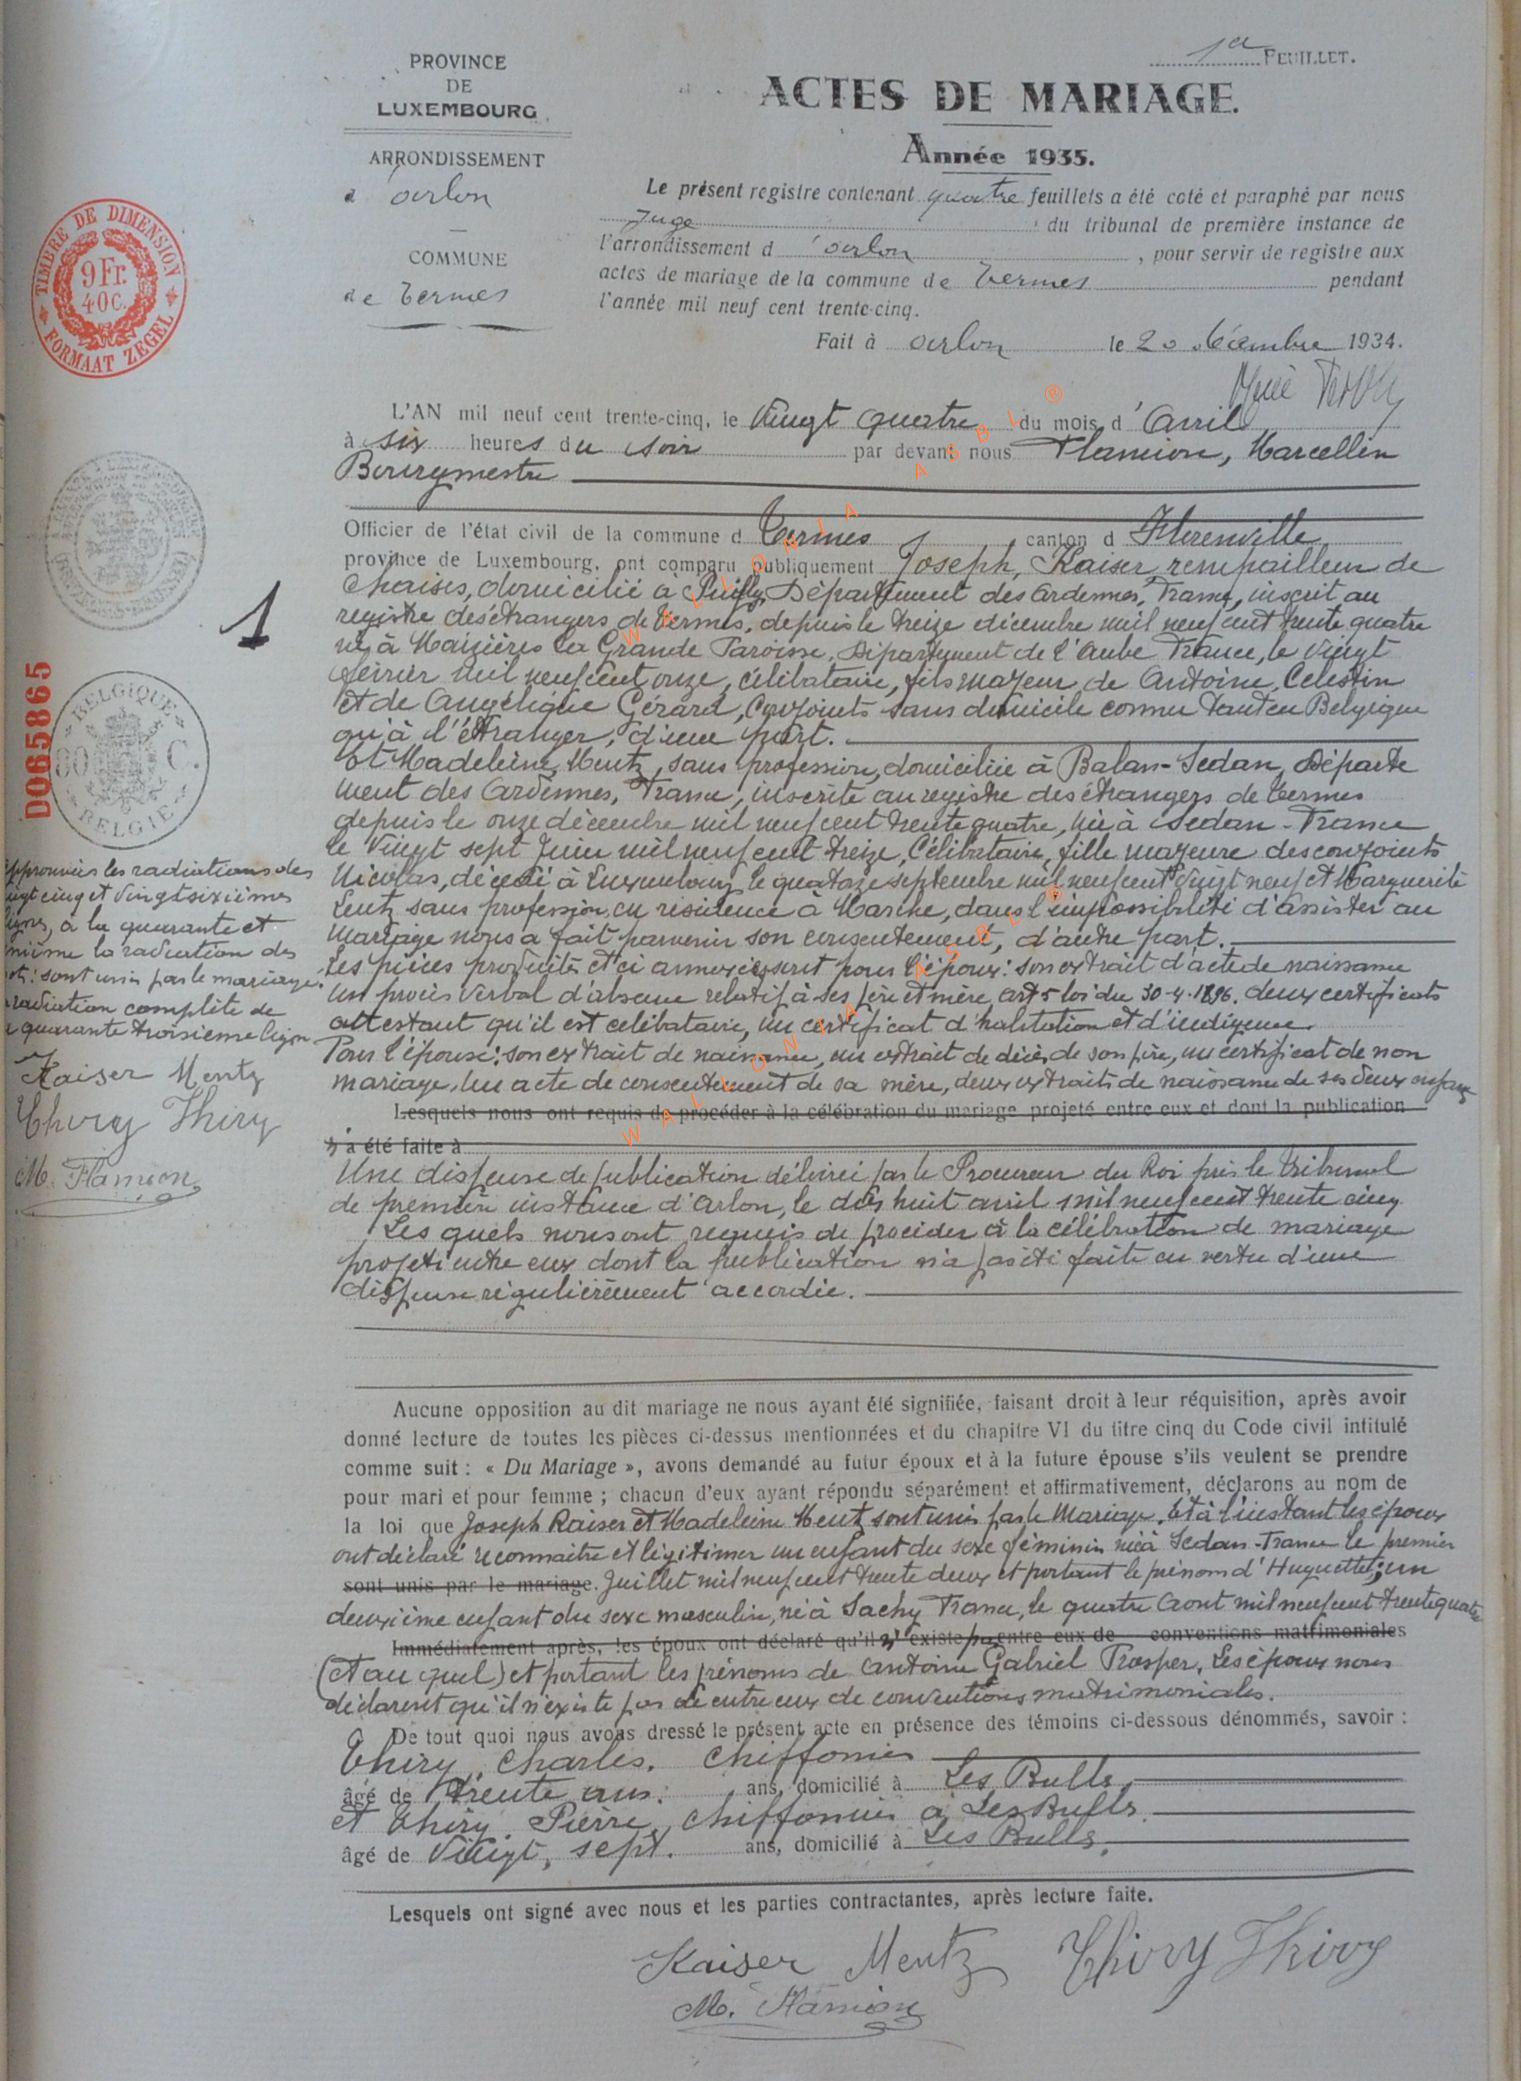 1er FEUILLET.
PROVINCE
DE
LUXEMBOURG
ARRONDISSEMENT
d'Arlon
COMMUNE
de Termes
ACTES DE MARIAGE.
Année 1935.
Le présent registre contenant quatre feuillets a été coté et paraphé par nous
Juge du tribunal de première instance de
l'arrondissement d'Arlon, pour servir de registre aux
actes de mariage de la commune de Termes pendant
l'année mil neuf cent trente-cinq.
Fait à Arlon le 20 décembre 1934.
TIMBRE DE DIMENSION
9 Fr.
40 C.
FORMAAT ZEGEL
L'AN mil neuf cent trente-cinq, le Vingt quatre du mois d'Avril
à six heures du soir par devant nous Flamion, Marcellin
Bourgmestre
Officier de l'état civil de la commune d Termes canton d Florenville
province de Luxembourg, ont comparu publiquement Joseph, Kaiser, rempailleur de
Chaises, domicilié à Puilly, Département des Ardennes, France, inscrit au
registre des étrangers de Termes, depuis le treize décembre mil neuf cent trente quatre
né à Maizières la Grande Paroisse, Département de l'Aube France, le Vingt
février mil neuf cent onze, célibataire, fils majeur de Antoine, Celestin
et de Angélique Gérard, conjoints sans domicile connu tant en Belgique
qu'à l'étranger, d'une part.
Et Madeleine, Mentz, sans profession, domiciliée à Balan-Sedan, Départe
ment des Ardennes, France, inscrite au registre des étrangers de Termes
depuis le onze décembre mil neuf cent trente quatre, née à Sedan - France
le Vingt sept Juin mil neuf cent treize, Célibataire, fille majeure des conjoints
Nicolas, décédé à Luxembourg le quatorze septembre mil neuf cent vingt neuf et Marguerite
Lentz sans profession, en résidence à Marche, dans l'impossibilité d'assister au
mariage nous a fait parvenir son consentement, d'autre part.
Les pièces produites et ci annexées sont pour l'époux: son extrait d'acte de naissance
un procès verbal d'absence relatif à ses père et mère, art 5 loi du 30-4-1896. deux certificats
attestant qu'il est célibataire, un certificat d'habitation et d'indigence.
Pour l'épouse: son extrait de naissance, un extrait de décès de son père, un certificat de non
mariage, un acte de consentement de sa mère, deux extraits de naissance de ses deux enfants
Lesquels nous ont requis de procéder à la célébration du mariage projeté entre eux et dont la publication
a été faite à
Une dispense de publication délivrée par le Procureur du Roi près le tribunal
de première instance d'Arlon, le dix huit avril mil neuf cent trente cinq
Les quels nous ont requis de procéder à la célébration de mariage
projeté entre eux dont la publication n'a pas été faite en vertu d'une
dispense régulièrement accordée.
Aucune opposition au dit mariage ne nous ayant été signifiée, faisant droit à leur réquisition, après avoir
donné lecture de toutes les pièces ci-dessus mentionnées et du chapitre VI du titre cinq du Code civil intitulé
comme suit : « Du Mariage », avons demandé au futur époux et à la future épouse s'ils veulent se prendre
pour mari et pour femme ; chacun d'eux ayant répondu séparément et affirmativement, déclarons au nom de
la loi que Joseph Kaiser et Madeleine Mentz sont unis par le Mariage. Et à l'instant les époux
ont déclaré reconnaitre et légitimer un enfant du sexe féminin née à Sedan-France le premier
sont unis par le mariage. Juillet mil neuf cent trente deux et portant le prénom d'Huguette; un
deuxième enfant du sexe masculin, né à Sachy France, le quatre Aout mil neuf cent trente quatre
Immédiatement après, les époux ont déclaré qu'il n'existe pas entre eux de conventions matrimoniales
(et au quel) et portant les prénoms de Antoine Gabriel Prosper. Les époux nous
déclarent qu'il n'existe pas de entre eux de conventions matrimoniales.
De tout quoi nous avons dressé le présent acte en présence des témoins ci-dessous dénommés, savoir :
Thiry, Charles. Chiffonnier
âgé de trente ans. ans, domicilié à Les Bulles,
et Thiry, Pierre, chiffonnier à Les Bulles
âgé de Vingt, sept. ans, domicilié à Les Bulles,
Lesquels ont signé avec nous et les parties contractantes, après lecture faite.
Kaiser Mentz Thiry Thiry
M. Flamion
1
D065865
BELGIQUE
C.
BELGIË
Approuvées les radiations des
vingt cinq et vingt sixièmes
lignes, à la quarante et
unième la radiation des
mots: sont unis par le mariage.
radiation complète de
la quarante troisième ligne
Kaiser Mentz
Thiry Thiry
M. Flamion
WALLONIA ASBL ®
WALLONIA ASBL ®